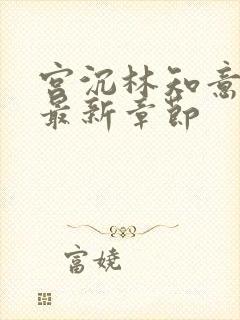 宫沉林知意
最新章节
富娆